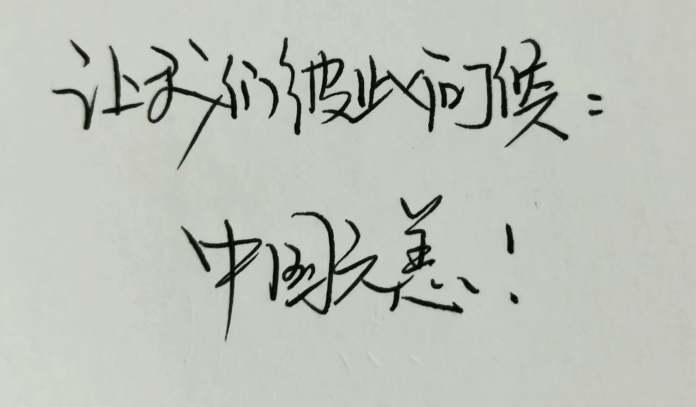 让我们彼此问候：
中国无恙！